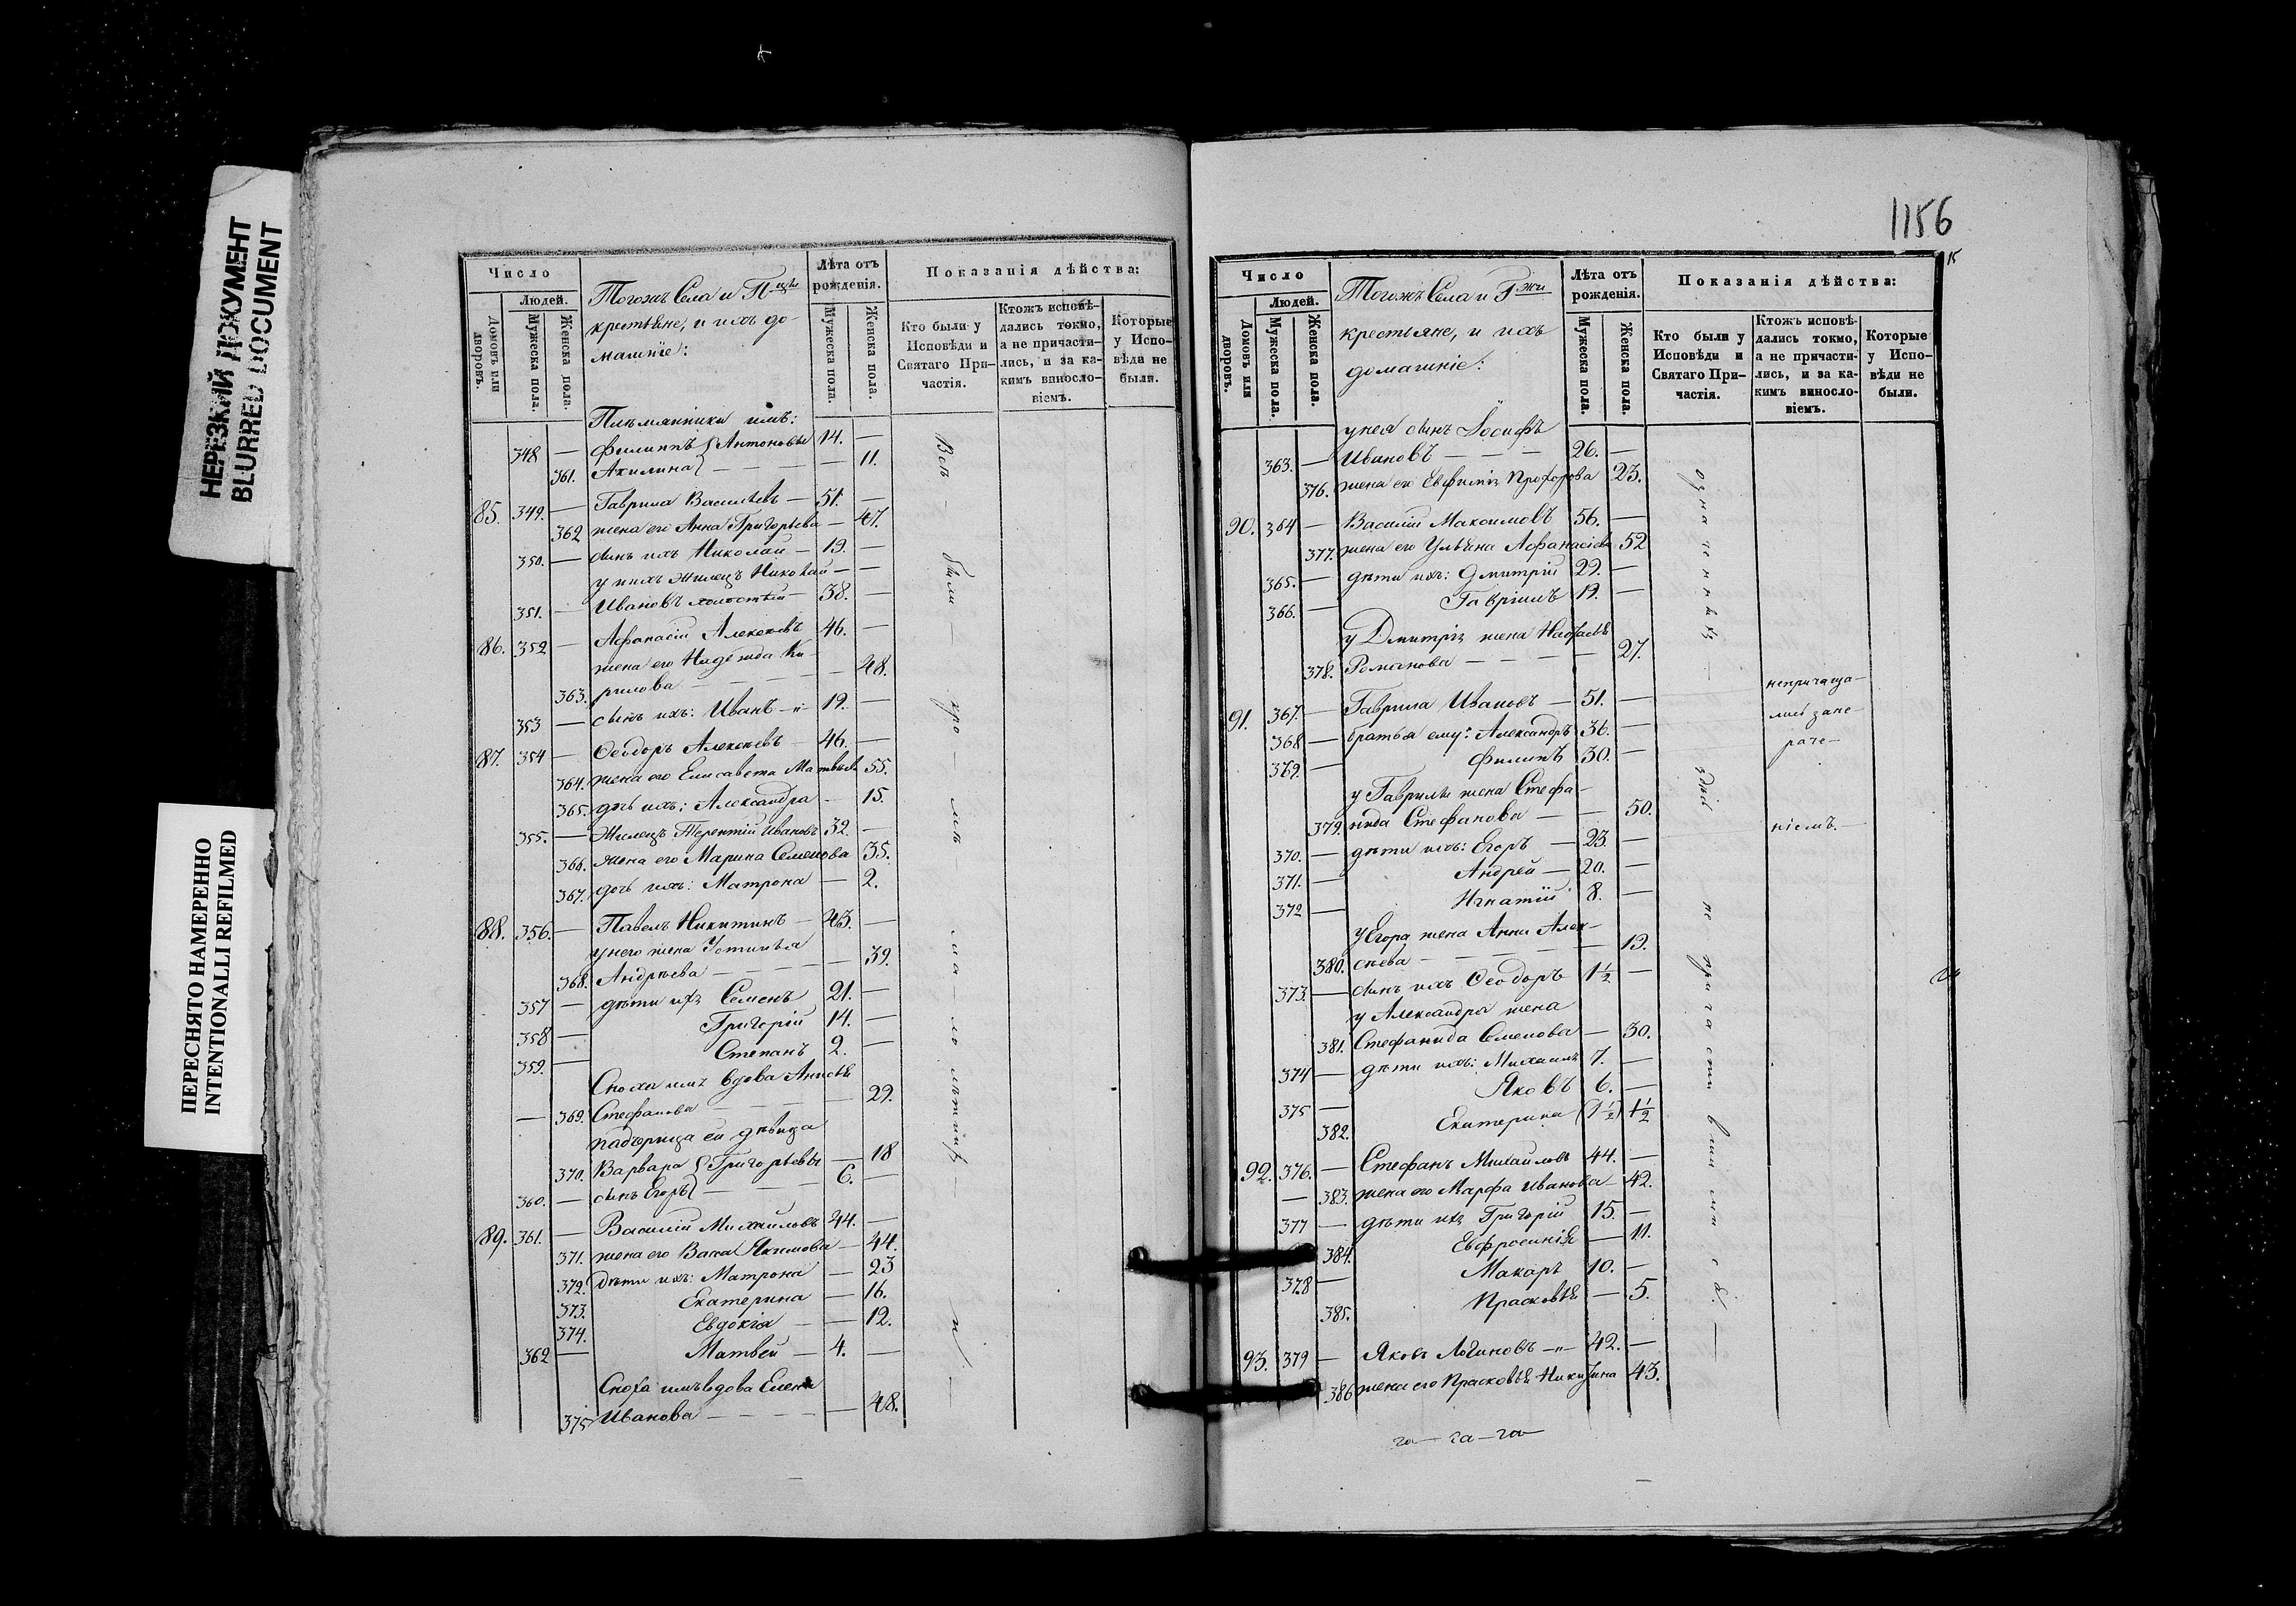 НЕРЕЗКИЙ ДОКУМЕНТ
BLURRED DOCUMENT
ПЕРЕСНЯТО НАМЕРЕННО
INTENTIONALLI REFILMED
Число
Людей.
Домовъ или дворовъ.
Мужеска пола.
Женска пола.
Тогожъ Села и
крестьяне, и ихъ до-
машніе:
Лѣта отъ рожденія.
Мужеска пола.
Женска пола.
Показанія дѣйства:
Кто были у Исповѣди и Святаго При-частія.
Ктожъ исповѣ-дались токмо, а не причасти-лись, и за ка-кимъ винosло-віемъ.
Которые у Испо-вѣди не были.
Племянники имъ:
348 — Филиппъ } Антоновы 14. —
361. Акилина } — — — 11.
85. 349. — Гаврила Васильевъ — 51. —
362 жена его Анна Григорьева — 47.
350. — сынъ ихъ Николай — 19. —
у нихъ жилецъ Николай — —
351. — Ивановъ холостый — 38. —
86. 352 — Афанасій Алексѣевъ 46. —
жена его Надежда Ки-
363. рилова — — — 48.
353 — сынъ ихъ: Иванъ -„- 19. —
87. 354 — Ѳеодоръ Алексѣевъ — 46. —
364. жена его Елисавета Матвѣева 55.
365. дочь ихъ: Александра — 15.
355. — Жилецъ Терентій Ивановъ 32. —
366. жена его Марина Семенова 35.
367. дочь ихъ: Матрона — 2.
88. 356. — Павелъ Никитинъ — 43. —
у него жена Устинья
368. Андрѣева — — — 39.
357 — дѣти ихъ Семенъ 21. —
358 — Григорій 14. —
359. — Степанъ 2. —
Сноха имъ вдова Анисья
— 369. Стефанова — — — 29.
падчерица ей дѣвица
370. Варвара } Григорьевы — 18
360. — сынъ Егоръ } — — 6. —
89. 361. — Василій Михайловъ 44. —
371. жена его Васса Якимова — 44.
372. дѣти ихъ: Матрона — 23
373. Екатерина — 16.
374. Евдокія — 12.
362 — Матвей — 4. —
Сноха имъ вдова Елена
375 Иванова — — — — 48.
1156
15
Число
Людей.
Домовъ или дворовъ.
Мужеска пола.
Женска пола.
Тогожъ Села и Гжи
крестьяне, и ихъ
домашніе:
Лѣта отъ рожденія.
Мужеска пола.
Женска пола.
Показанія дѣйства:
Кто были у Исповѣди и Святаго При-частія.
Ктожъ исповѣ-дались токмо, а не причасти-лись, и за ка-кимъ винosло-віемъ.
Которые у Испо-вѣди не были.
у нея сынъ Іосифъ
363. — Ивановъ — — — 26. —
376. жена его Евфимія Прохорова 23.
90. 364 — Василій Максимовъ 56. —
377. жена его Ульяна Афанасіева 52
365. — дѣти ихъ: Дмитрій 29. —
366. — Гавріилъ 19. —
у Дмитрія жена Наталья
378. Романова — — — — 27.
91. 367. — Гаврила Ивановъ — 51. —
368 — братья ему: Александръ 36. —
369. — Филипъ 30. —
непричаща-
лись зане-
раче-
ніемъ.
у Гаврилы жена Стефа-
379. нида Стефанова — — 50.
370. — дѣти ихъ: Егоръ — 23. —
371. — Андрей — 20. —
372 — Игнатій 8. —
у Егора жена Анна Алек-
380. сѣева — — — — 19.
373. — сынъ ихъ Ѳеодоръ 1½ —
у Александра жена
381. Стефанида Семенова — 30.
374 — дѣти ихъ: Михаилъ 7. —
375 — Яковъ 6. —
382. Екатерина (1½) 1½
92. 376. — Стефанъ Михайловъ 44. —
— 383. жена его Марфа Иванова — 42.
377 — дѣти ихъ Григорій 15. —
384. Евфросинія — 11.
378 — Макаръ 10. —
385. Прасковья — 5.
93. 379 — Яковъ Логиновъ -„- 42. —
386 жена его Прасковья Никитина 43.